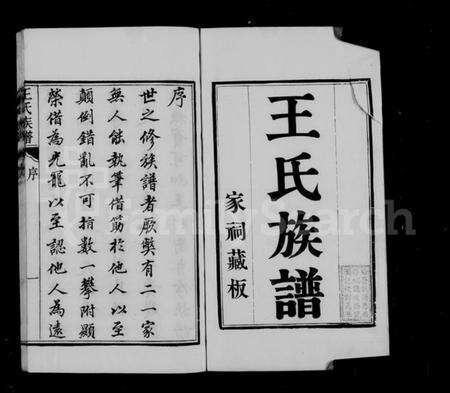 王氏族譜
家祠藏板
序
世之修族譜者厥獘有二一家
無人能執筆借箸於他人以至
顛倒錯亂不可指數一攀附顯
榮借為光寵以至認他人為遠
王氏族譜
序
FamilySearch